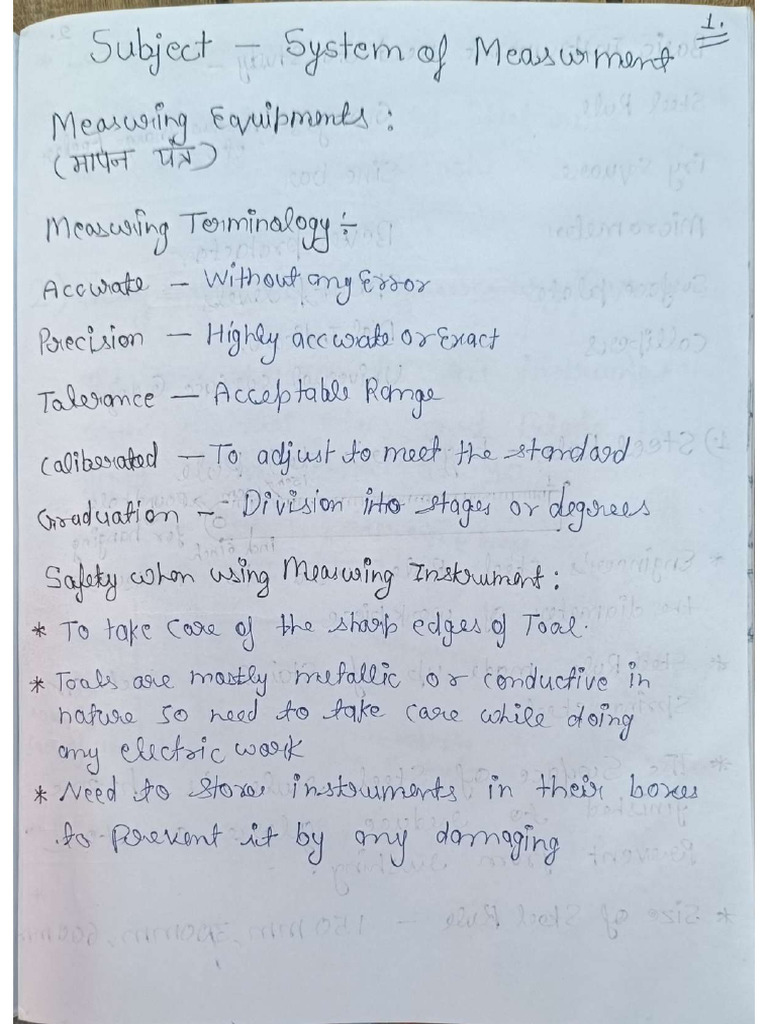 1.
Subject - System of Measurment
Measuring Equipments :
(मापन यंत्र)
Measuring Terminology :-
Accurate - Without any Error
Precision - Highly accurate or Exact
Tolerance - Acceptable Range
Caliberated - To adjust to meet the standard
Graduation - Division into stages or degrees
Safety when using Measuring Instrument :
* To take care of the sharp edges of Tool.
* Tools are mostly metallic or conductive in
nature so need to take care while doing
any electric work
* Need to store instruments in their boxes
to prevent it by any damaging